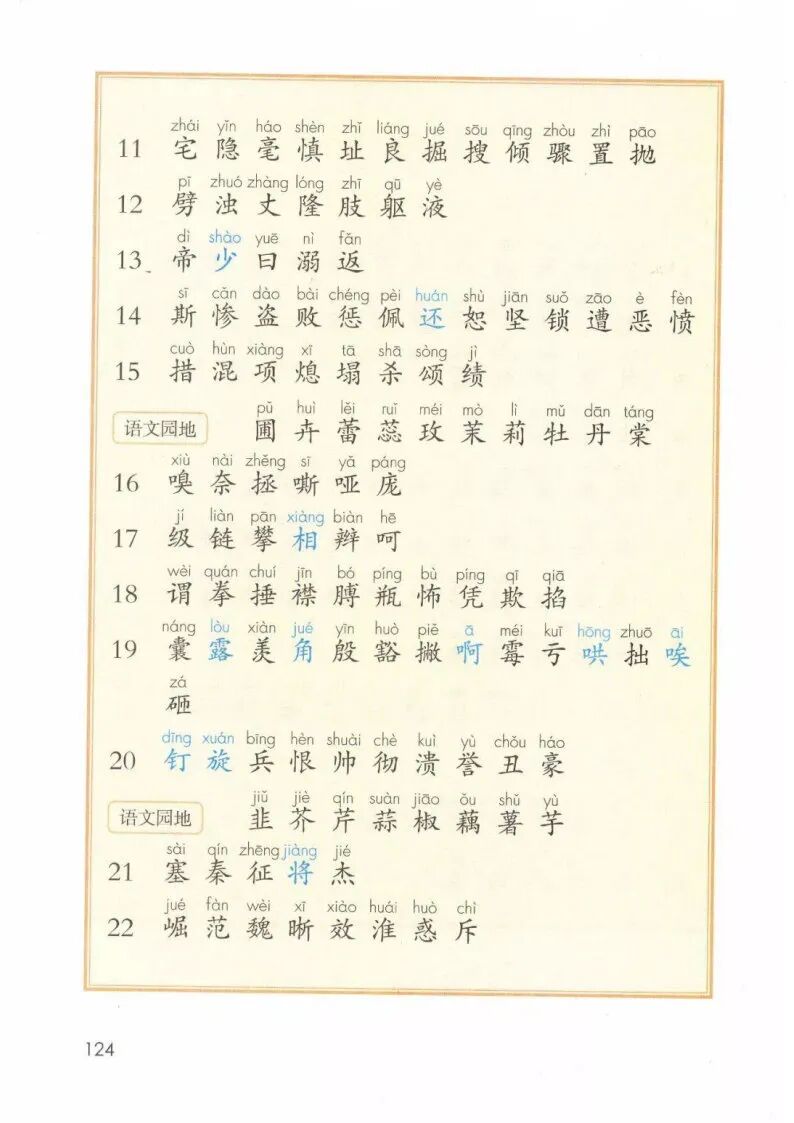 zhái yǐn háo shèn zhǐ liáng jué sōu qīng zhòu zhì pāo
11 宅 隐 毫 慎 址 良 掘 搜 倾 骤 置 抛
pī zhuó zhàng lóng zhī qū yè
12 劈 浊 丈 隆 肢 躯 液
dì shào yuē nì fǎn
13 帝 少 曰 溺 返
sī cǎn dào bài chéng pèi huán shù jiān suǒ zāo è fèn
14 斯 惨 盗 败 惩 佩 还 恕 坚 锁 遭 恶 愤
cuò hùn xiàng xī tā shā sòng jì
15 措 混 项 熄 塌 杀 颂 绩
pǔ huì lěi ruǐ méi mò lì mǔ dān táng
语文园地 圃 卉 蕾 蕊 玫 茉 莉 牡 丹 棠
xiù nài zhěng sī yǎ páng
16 嗅 奈 拯 嘶 哑 庞
jí liàn pān xiàng biàn hē
17 级 链 攀 相 辩 呵
wèi quán chuí jīn bó píng bù píng qī qiā
18 谓 拳 捶 襟 膊 瓶 怖 凭 欺 掐
náng lòu xiàn jué yīn huò piě ā méi kuī hōng zhuō āi
19 囊 露 羡 角 殷 豁 撇 啊 霉 亏 哄 拙 唉
zá
砸
dīng xuán bīng hèn shuài chè kuì yù chǒu háo
20 钉 旋 兵 恨 帅 彻 溃 誉 丑 豪
jiǔ jiè qín suàn jiāo ǒu shǔ yù
语文园地 韭 芥 芹 蒜 椒 藕 薯 芋
sài qín zhēng jiàng jié
21 塞 秦 征 将 杰
jué fàn wèi xī xiào huái huò chì
22 崛 范 魏 晰 效 淮 惑 斥
124